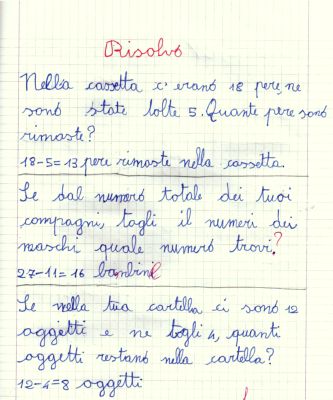 Risolvo
Nella cassetta c'erano 18 pere, ne
sono state tolte 5. Quante pere sono
rimaste?
18-5=13 pere rimaste nella cassetta.
Se dal numero totale dei tuoi
compagni, togli il numeri dei
maschi quale numero trovi?
27-11=16 bambine
Se nella tua cartella ci sono 12
oggetti e ne togli 4, quanti
oggetti restano nella cartella?
12-4=8 oggetti